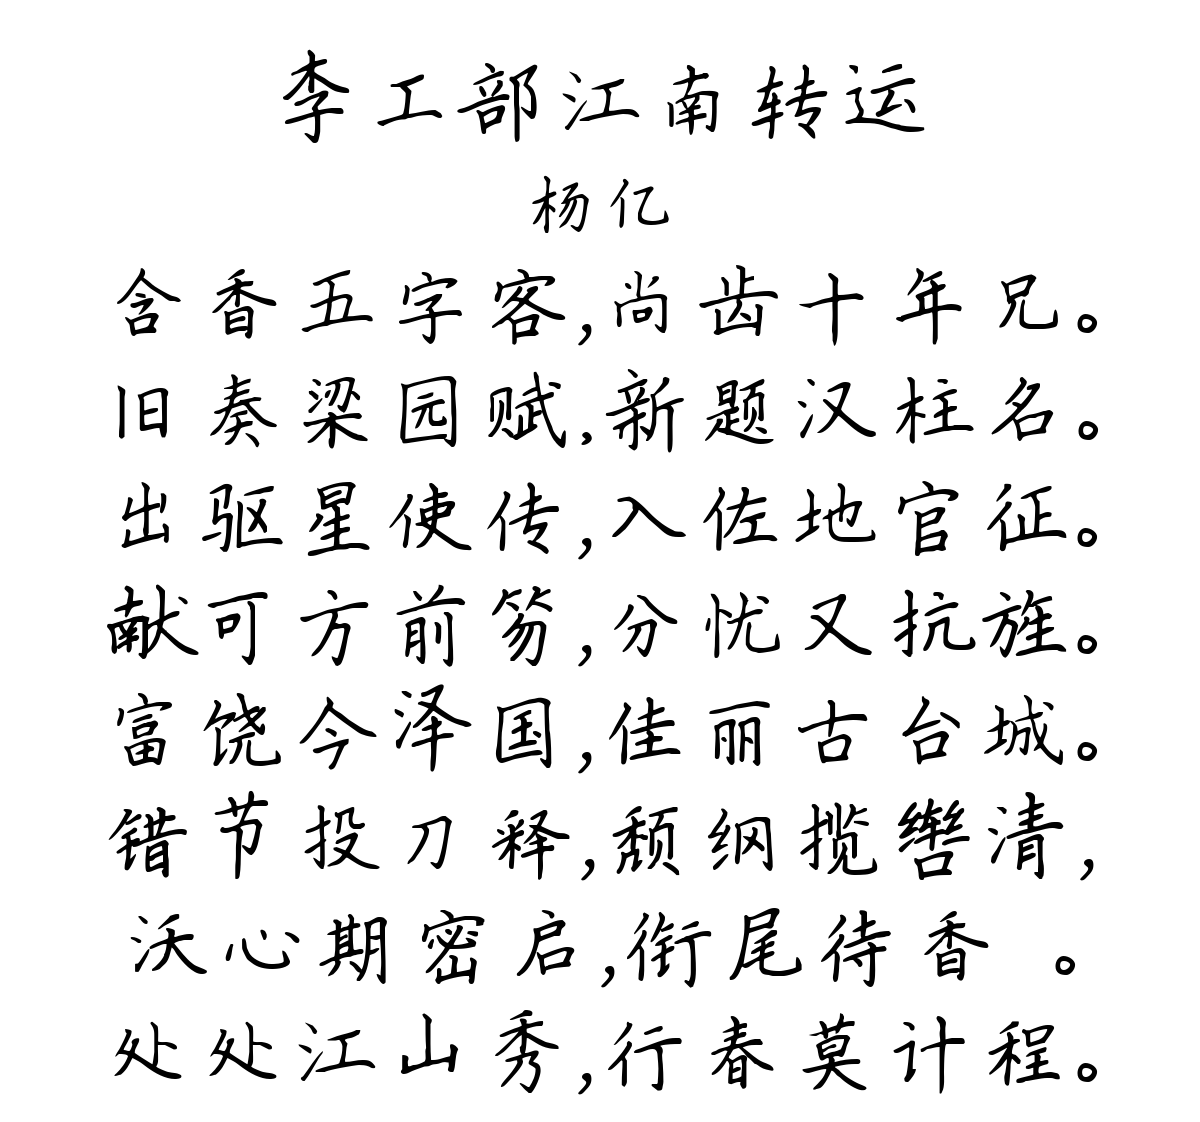 李工部江南转运
杨亿
含香五字客,尚齿十年兄。
旧奏梁园赋,新题汉柱名。
出驱星使传,入佐地官征。
献可方前笏,分忧又抗旌。
富饶今泽国,佳丽古台城。
错节投刀释,颓纲揽辔清,
沃心期密启,衔尾待香 。
处处江山秀,行春莫计程。